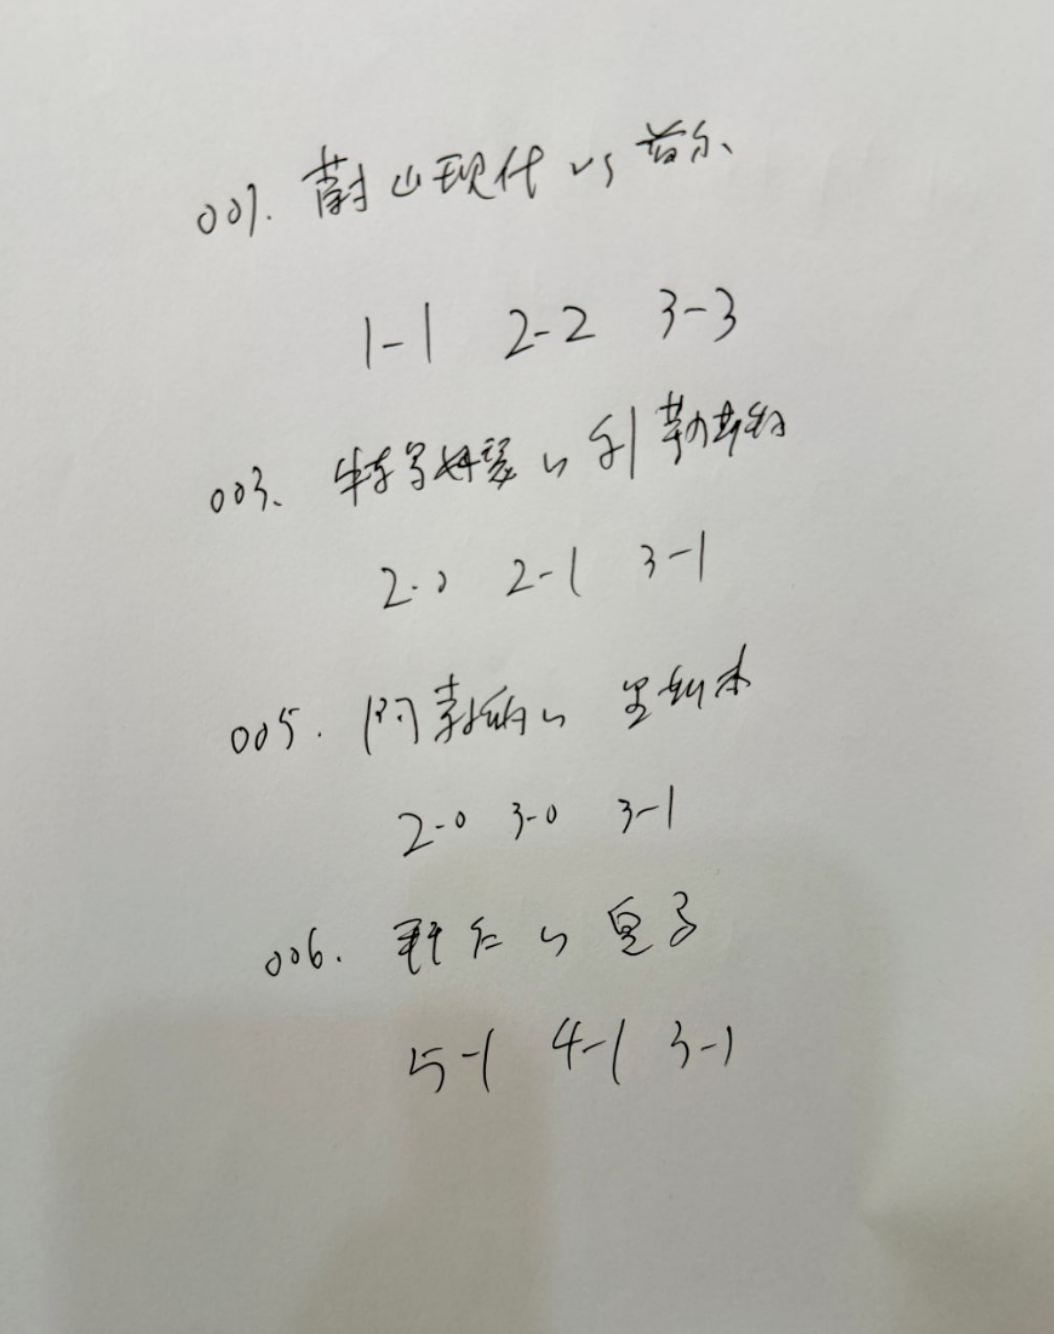 001. 蔚山现代 vs 首尔
1-1 2-2 3-3
003、特罗姆瑟 vs 利勒斯特
2-0 2-1 3-1
005. 阿素纳 vs 里斯本
2-0 3-0 3-1
006. vs 皇马
5-1 4-1 3-1